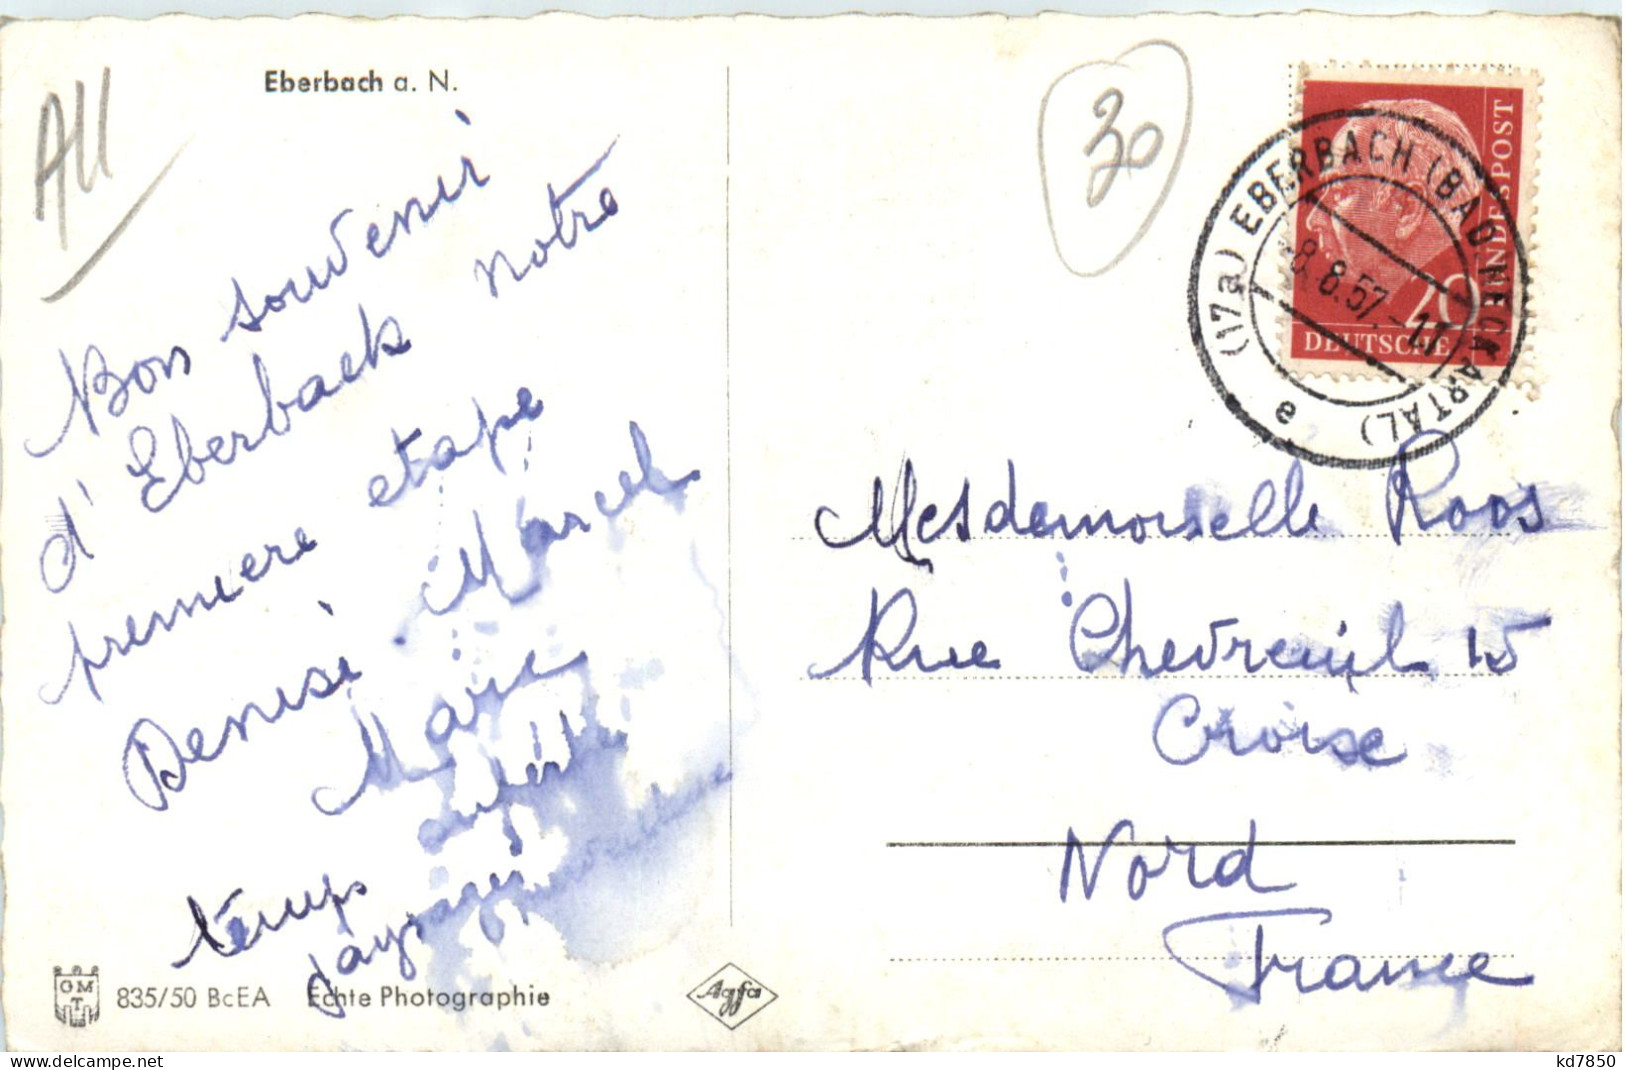 Eberbach a. N.
All
30
Bon souvenir
d'Eberback notre
premiere etape
Denise Marcel
Marie
temps
paysages
(17a) EBERBACH (BAD. NECKARTAL)
8.8.57.-17
a
DEUTSCHE BUNDESPOST
20
Mesdemoiselle Roos
Rue Chevreuil 15
Croise
Nord
France
GMT
835/50 BcEA Echte Photographie
Agfa
www.delcampe.net
kd7850